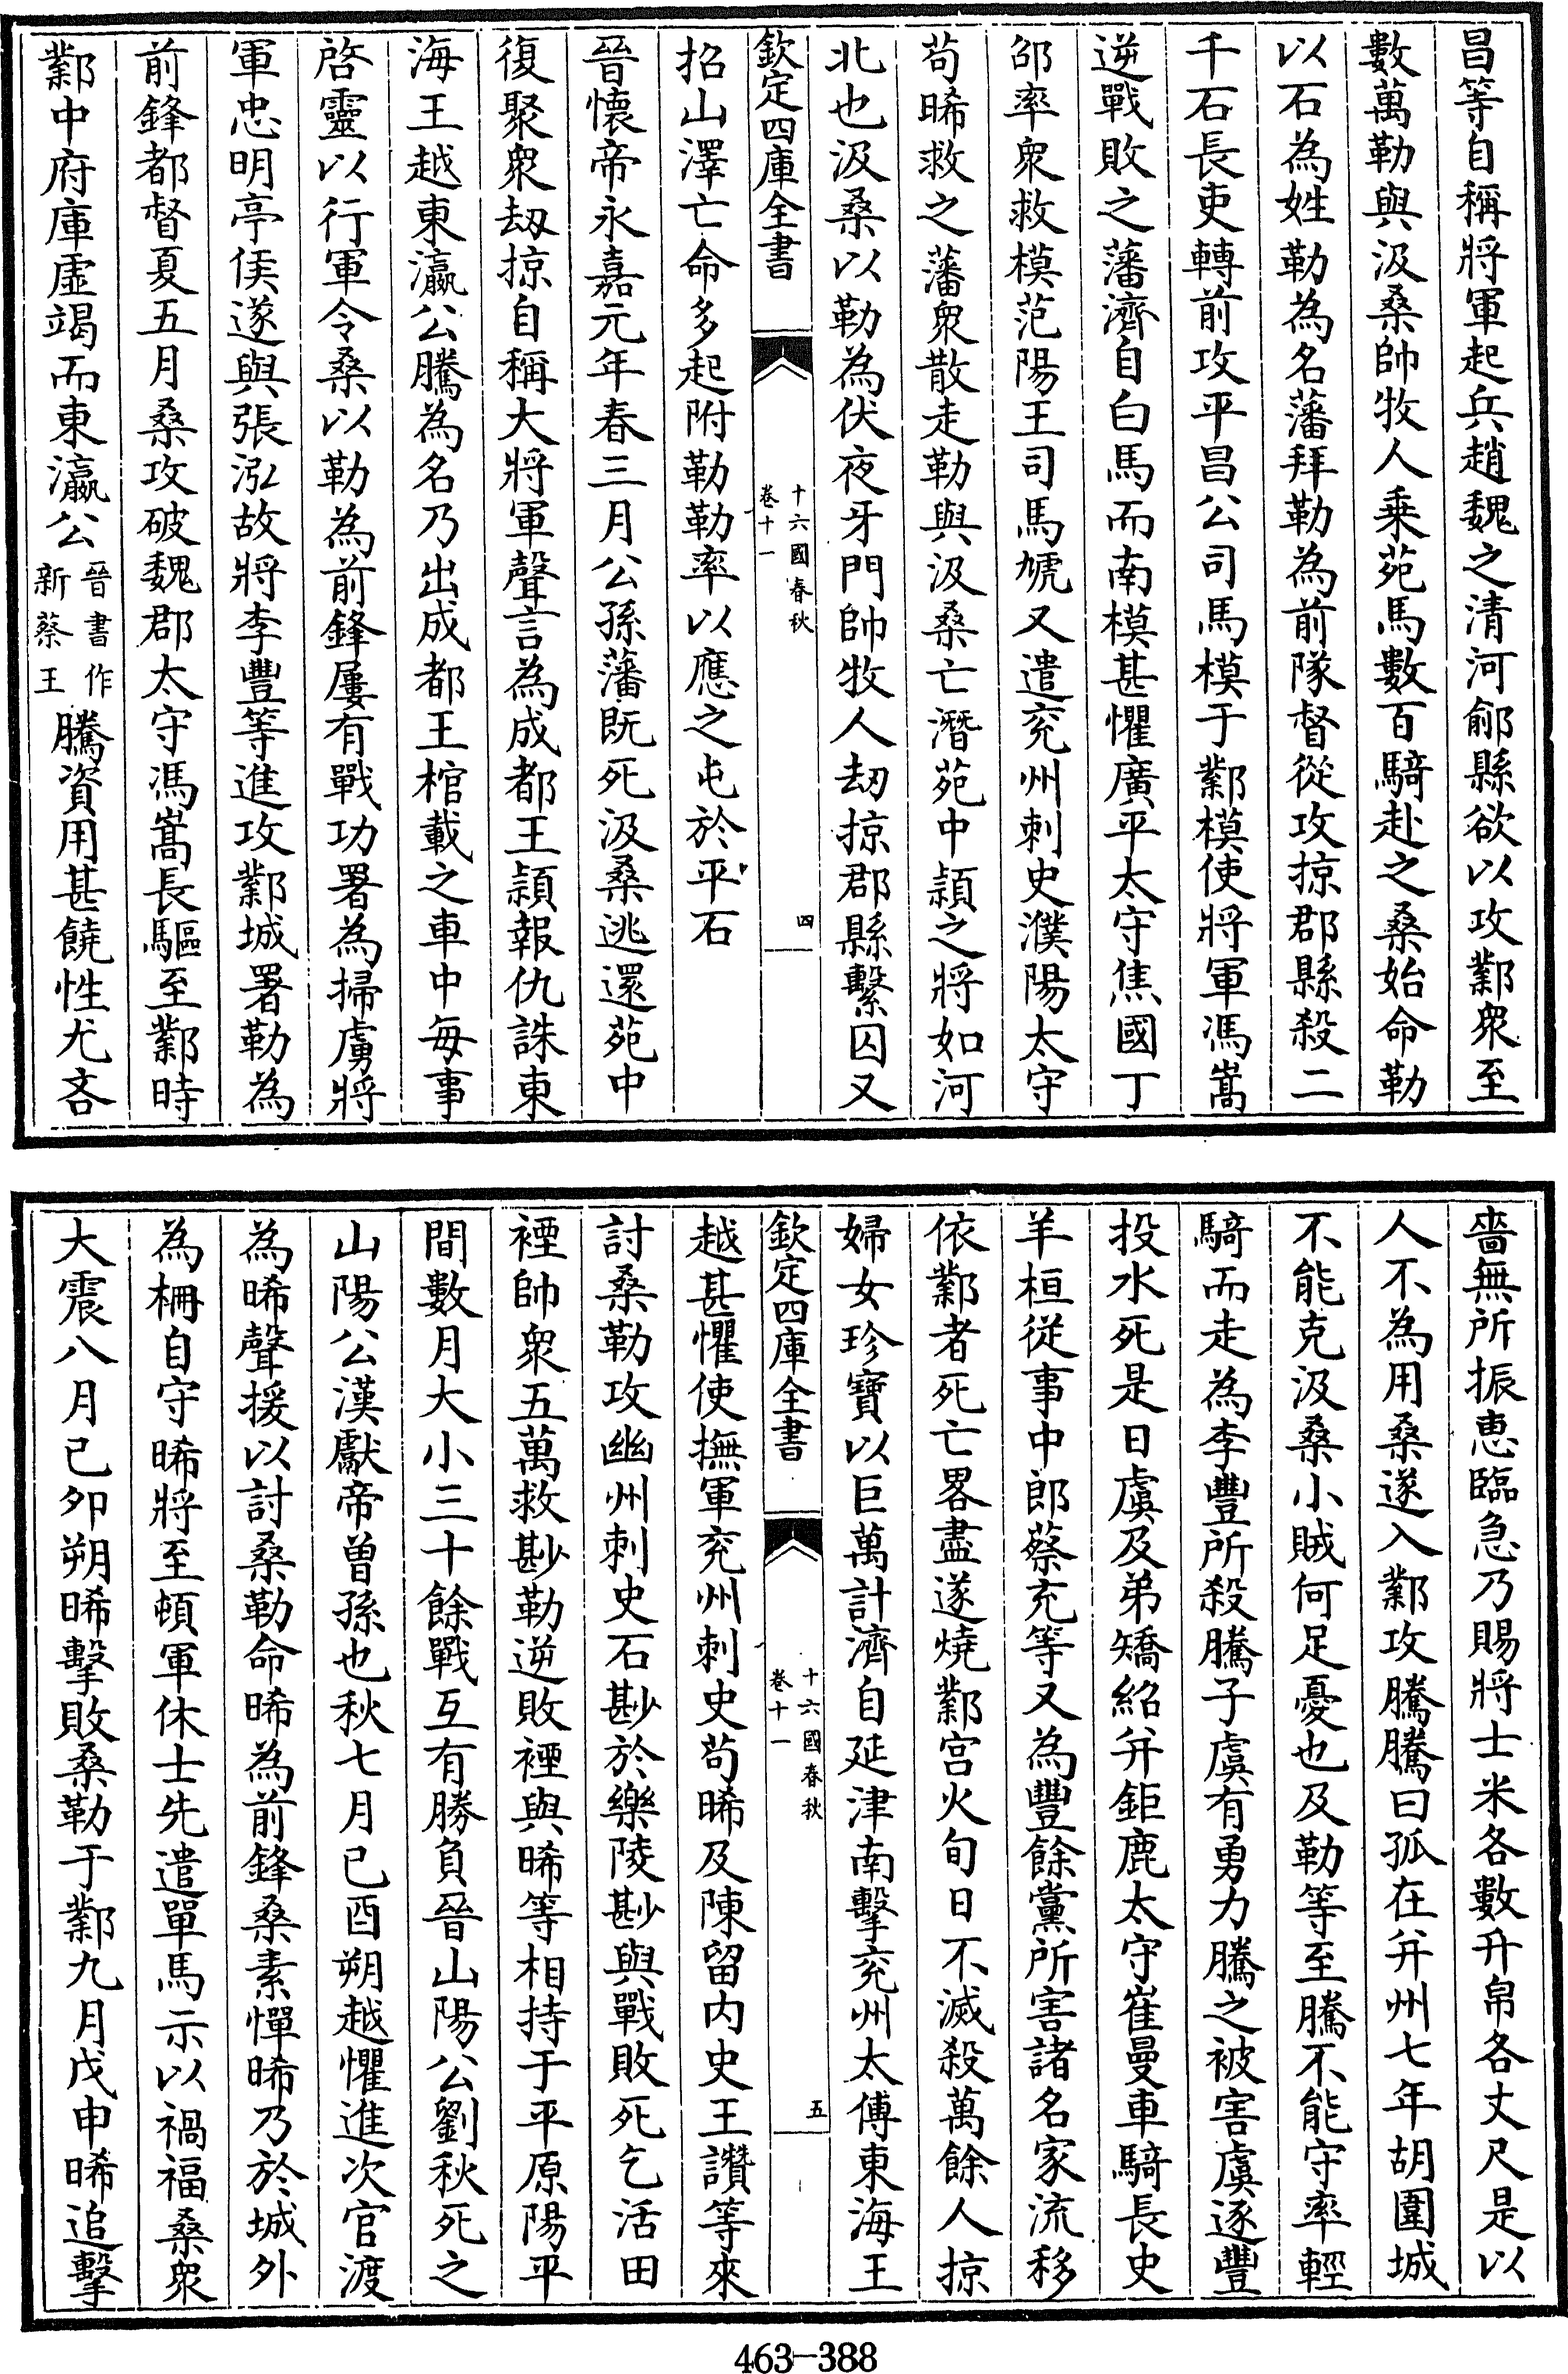 昌等自稱將軍起兵趙魏之清河鄃縣欲以攻鄴衆至
數萬勒與汲桑帥牧人乗苑馬數百騎赴之桑始命勒
以石為姓勒為名藩拜勒為前隊督從攻掠郡縣殺二
千石長吏轉前攻平昌公司馬模于鄴模使將軍馮嵩
逆戰敗之藩濟自白馬而南模甚懼廣平太守焦國丁
邵率衆救模范陽王司馬虓又遣兖州刺史濮陽太守
苟晞救之藩衆散走勒與汲桑亡潛苑中頴之將如河
北也汲桑以勒為伏夜牙門帥牧人刼掠郡縣繫囚又
欽定四庫全書
十六國春秋
卷十一
四
招山澤亡命多起附勒勒率以應之屯於平石
晉懷帝永嘉元年春三月公孫藩既死汲桑逃還苑中
復聚衆刼掠自稱大將軍聲言為成都王頴報仇誅東
海王越東瀛公騰為名乃出成都王棺載之車中每事
啓靈以行軍令桑以勒為前鋒屢有戰功署為掃虜將
軍忠明亭侯遂與張泓故將李豐等進攻鄴城署勒為
前鋒都督夏五月桑攻破魏郡太守馮嵩長驅至鄴時
鄴中府庫虛竭而東瀛公晉書作新蔡王騰資用甚饒性尤吝
嗇無所振恵臨急乃賜將士米各數升帛各丈尺是以
人不為用桑遂入鄴攻騰騰曰孤在并州七年胡圍城
不能克汲桑小賊何足憂也及勒等至騰不能守率輕
騎而走為李豐所殺騰子虞有勇力騰之被害虞逐豐
投水死是日虞及弟矯紹并鉅鹿太守崔曼車騎長史
羊桓從事中郎蔡充等又為豐餘黨所害諸名家流移
依鄴者死亡畧盡遂燒鄴宫火旬日不滅殺萬餘人掠
婦女珍寶以巨萬計濟自延津南擊兖州太傅東海王
欽定四庫全書
十六國春秋
卷十一
五
越甚懼使撫軍兖州刺史苟晞及陳留内史王讚等來
討桑勒攻幽州刺史石尠於樂陵尠與戰敗死乞活田
禋帥衆五萬救尠勒逆敗禋與晞等相持于平原陽平
間數月大小三十餘戰互有勝負晉山陽公劉秋死之
山陽公漢獻帝曽孫也秋七月己酉朔越懼進次官渡
為晞聲援以討桑勒命晞為前鋒桑素憚晞乃於城外
為柵自守晞將至頓軍休士先遣單馬示以禍福桑衆
大震八月己夘朔晞擊敗桑勒于鄴九月戊申晞追擊
463-388